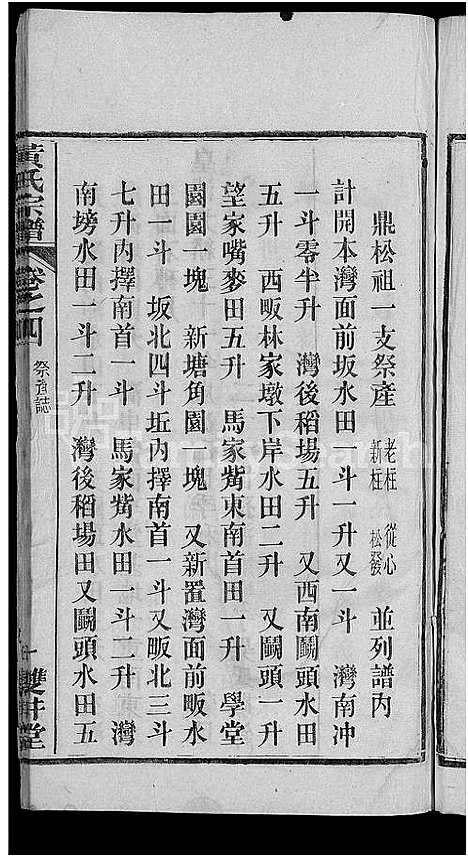 鼎松祖一支祭產 老枉 從心 新枉 松發 並列譜內
計開本灣面前坂水田一斗一升又一斗 灣南冲
一斗零半升 灣後稻場五升 又西南鬬頭水田
五升 西畈林家墩下岸水田二升 又鬬頭一升
望家嘴麥田五升 馬家觜東南首田一升 學堂
園園一塊 新塘角園一塊 又新置灣面前畈水
田一斗 坂北四斗坵內擇南首一斗又畈北三斗
七升內擇南首一斗 馬家觜水田一斗二升 灣
南塝水田一斗二升 灣後稻場田又鬬頭水田五
黃氏宗譜 卷之四 祭產誌 雙井堂